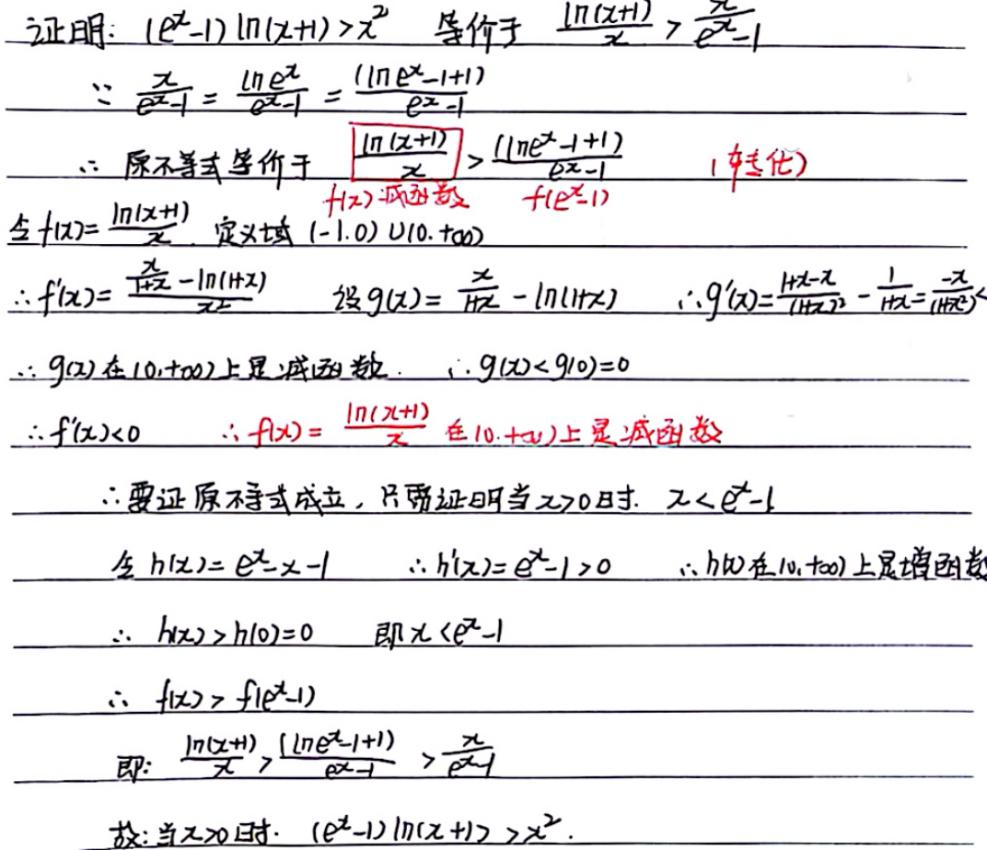 证明: (e^x-1) ln(x+1) > x^2 等价于 \frac{ln(x+1)}{x} > \frac{x}{e^x-1}
∵ \frac{x}{e^x-1} = \frac{ln e^x}{e^x-1} = \frac{(ln e^x-1+1)}{e^x-1}
∴ 原不等式等价于 \frac{ln(x+1)}{x} > \frac{(ln e^x-1+1)}{e^x-1} (转化)
f(x)减函数 f(e^x-1)
令 f(x)= \frac{ln(x+1)}{x} . 定义域 (-1.0)∪(0.+∞)
∴ f'(x)= \frac{\frac{x}{1+x} - ln(1+x)}{x^2} 设g(x)= \frac{x}{1+x} - ln(1+x) ∴g'(x)= \frac{1+x-x}{(1+x)^2} - \frac{1}{1+x} = \frac{-x}{(1+x^2)} <
∴ g(x) 在(0,+∞)上是减函数. ∴ g(x)<g(0)=0
∴ f'(x)<0 ∴ f(x)= \frac{ln(x+1)}{x} 在(0.+∞)上是减函数
∴要证原不等式成立, 只需证明当x>0时. x<e^x-1
令 h(x)= e^x-x-1 ∴h'(x)=e^x-1>0 ∴h(x)在(0,+∞)上是增函数
∴ h(x)>h(0)=0 即x<e^x-1
∴ f(x)> f(e^x-1)
即: \frac{ln(x+1)}{x} > \frac{(ln e^x-1+1)}{e^x-1} > \frac{x}{e^x-1}
故:当x>0时. (e^x-1)ln(x+1) > x^2.